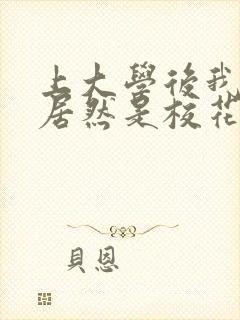 上大學後我
居然是校花
貝恩